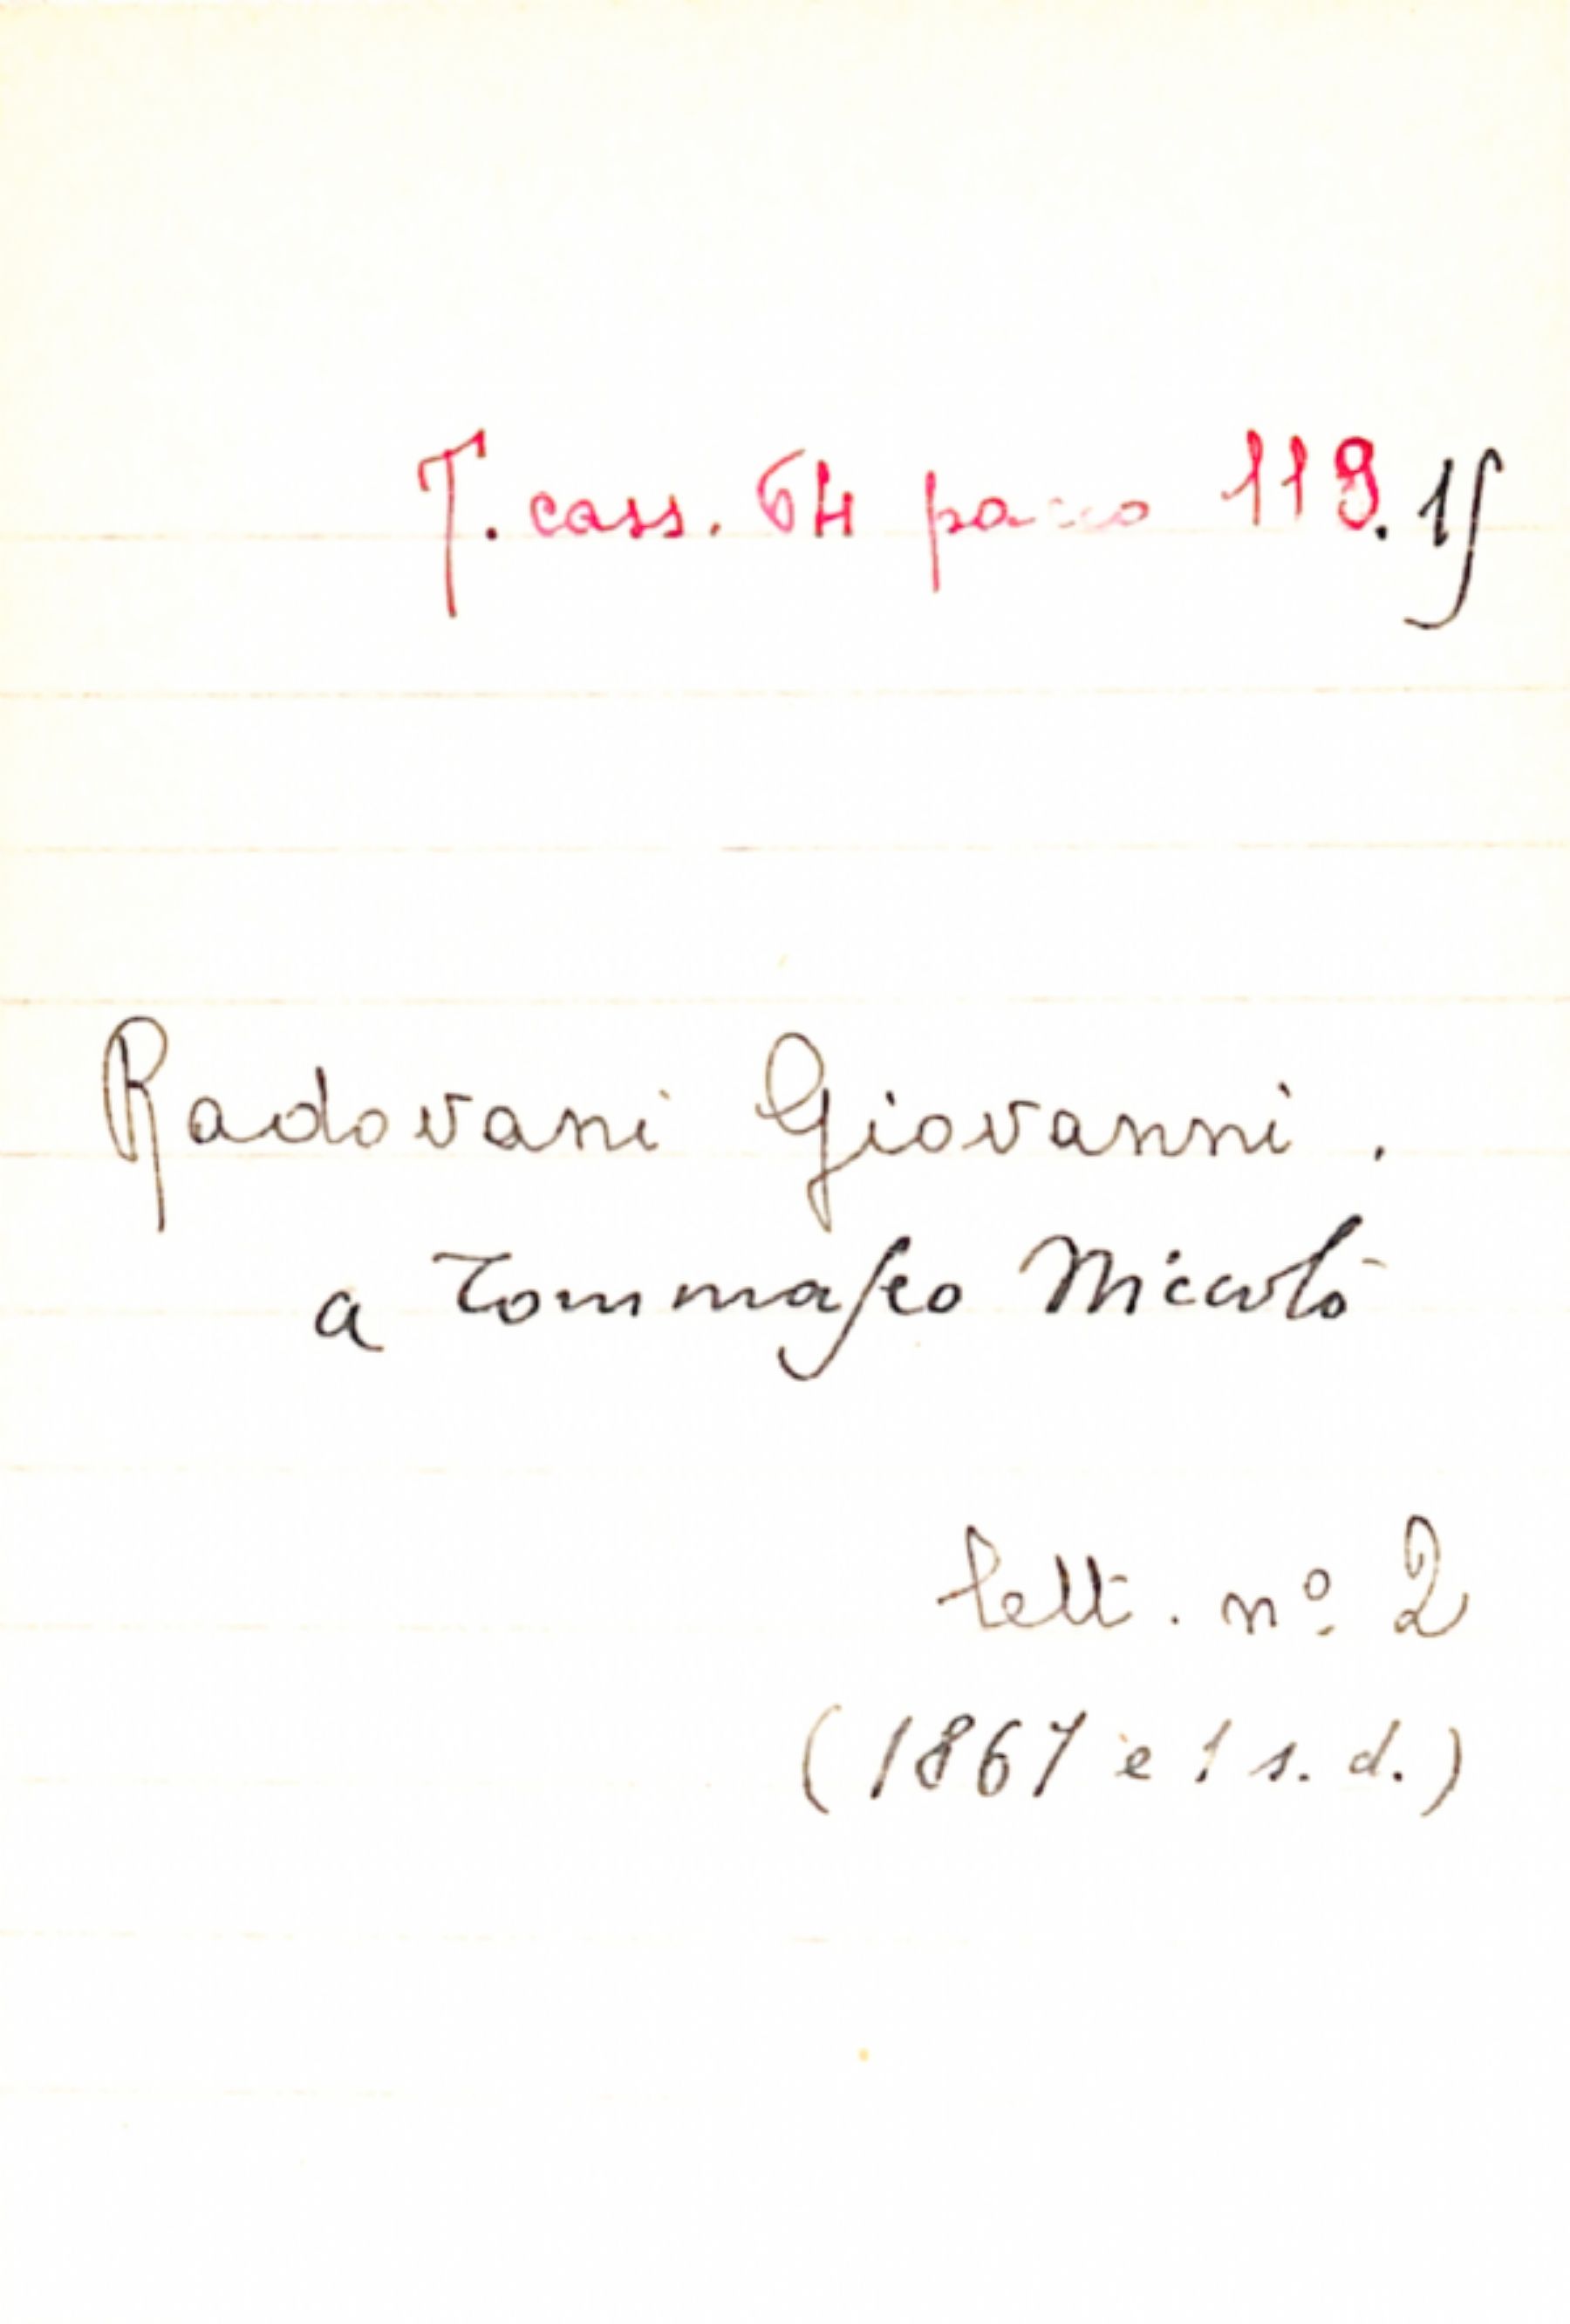 T. cass. 64 pacco 119. 15
Radovani Giovanni.
a Tommaseo Niccolò
lett. nº 2
(1867 e 1 s. d.)